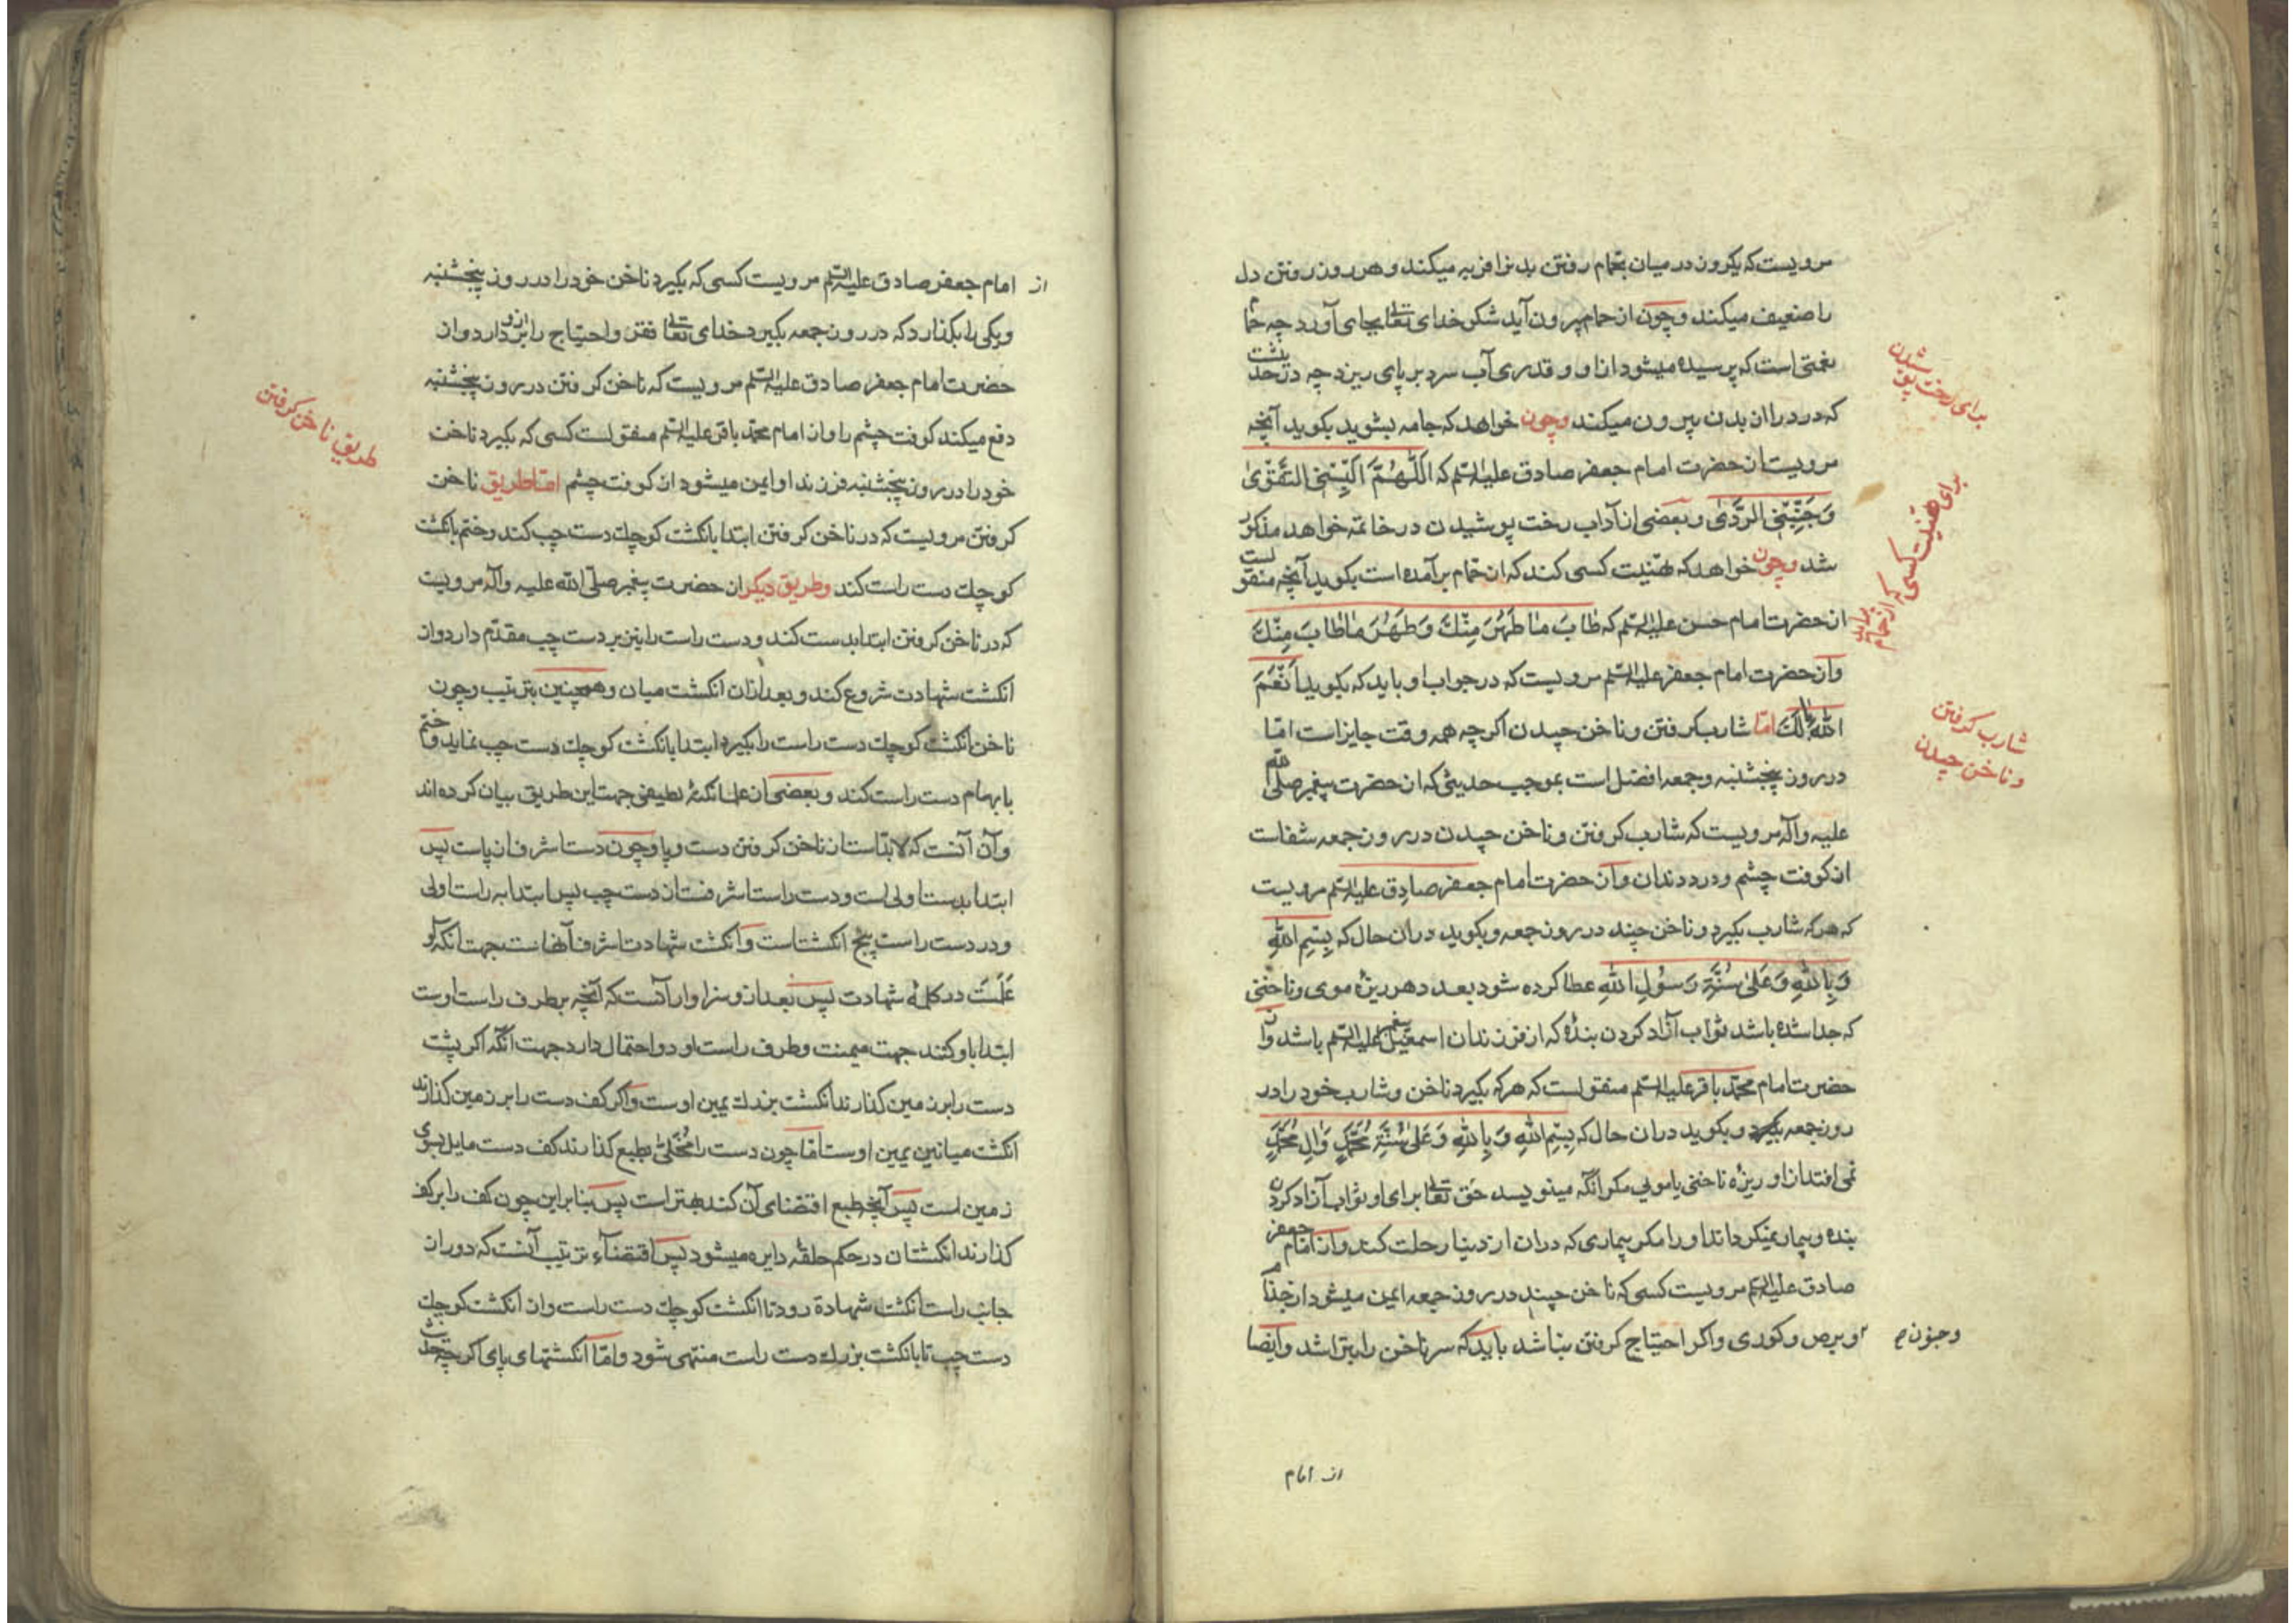 مرویست که یکروز در میان بحمام رفتن بدنرا فربه میکند و هر روز رفتن دل
را ضعیف میکند وچون از حمام بیرون آید شکر خدای تعالی بجای آورد چه حمام
نعمتی است که پرسیده میشود از او و قدری آب سرد بر پای ریزد چه در حدیثست
که درد را از بدن بیرون میکند وچون خواهد که جامه بپوشد بکوید آنچه
برای رخت پوشیدن
مرویست از حضرت امام جعفر صادق علیه السلم که اَللّٰهُمَّ اَلْبِسْنِی التَّقْوٰی
وَجَنِّبْنِی الرَّدٰی وبعضی از آداب رخت پوشیدن در خاتمه خواهد مذکور
شد وچون خواهد که تهنیت کسی کند که از حمام برآمده است بکوید آنچه منقولست
برای تهنیت کسی که از حمام برآید
از حضرت امام حسن علیه السلم که طٰابَ مٰا طَهُرَ مِنْكَ وَطَهُرَ مٰا طٰابَ مِنْكَ
واز حضرت امام جعفر علیه السلم مرویست که در جواب او باید که بکوید اَنْعَمَ
اللهُ بٰالَكَ امّا شارب کرفتن وناخن چیدن اکرچه همه وقت جایز است امّا
شارب کرفتن
وناخن چیدن
در روز پنجشنبه وجمعه افضل است بموجب حدیثی که از حضرت پیغمبر صلی الله
علیه وآله مرویست که شارب کرفتن وناخن چیدن در روز جمعه شفاست
از کوفت چشم ودرد دندان وآز حضرت امام جعفر صادق علیه السلم مرویست
که هرکه شارب بکیرد وناخن چیند در روز جمعه وبکوید در ان حال که بِسْمِ اللهِ
وَبِاللهِ وَعَلیٰ سُنَّةِ رَسُولِ اللهِ عطا کرده شود بعدد هر ریزهٔ موی وناخنی
که جدا شده باشد ثواب آزاد کردن بندهٔ که از فرزندان اسمعیل پیغمبر علیه السلم باشد واز
حضرت امام محمّد باقر علیه السلم منقولست که هرکه بکیرد ناخن وشارب خود را در
روز جمعه وبکوید در ان حال که بِسْمِ اللهِ وَبِاللهِ وَعَلیٰ سُنَّةِ مُحَمَّدٍ وَاٰلِ مُحَمَّدٍ
نمی افتد از او ریزهٔ ناخنی یا مویی مکر آنکه مینویسد حق تعالی برای او ثواب آزاد کردن
بنده وبیمار نمیکرداند او را مکر بیماری که در ان از دنیا رحلت کند واز امام جعفر
صادق علیه السلم مرویست کسی که ناخن چیند در روز جمعه ایمن میشود از جذام
وجنون ص
وبرص وکوری واکر احتیاج کرفتن نباشد باید که سر ناخن را بتراشد وایضا
از امام
از امام جعفر صادق علیه السلم مرویست کسی که بکیرد ناخن خود را در روز پنجشنبه
ویکی را بکذارد که در روز جمعه بکیرد خدای تعالی فقر واحتیاج را از او بردارد واز
حضرت امام جعفر صادق علیه السلم مرویست که ناخن کرفتن در روز پنجشنبه
دفع میکند کوفت چشم را واز امام محمّد باقر علیه السلم منقولست کسی که بکیرد ناخن
طریق ناخن کرفتن
خود را در روز پنجشنبه فرزند او ایمن میشود از کوفت چشم امّا طریق ناخن
کرفتن مرویست که در ناخن کرفتن ابتدا بانکشت کوچك دست چب کند وختم بانکشت
کوچك دست راست کند وطریق دیکر از حضرت پیغمبر صلّی الله علیه وآله مرویست
که در ناخن کرفتن ابتدا بدست کند ودست راست را نیز بر دست چب مقدّم دارد واز
انکشت شهادت شروع کند وبعد ازان انکشت میان وهمچنین بترتیب وچون
ناخن انکشت کوچك دست راست را بکیرد ابتدا بانکشت کوچك دست چب نماید وختم
بابهام دست راست کند وبعضی از علما نکتهٔ لطیفی جهت این طریق بیان کرده اند
وآن آنست که لابدّ است از ناخن کرفتن دست وپا وچون دست اشرف از پاست پس
ابتدا بدست اولی است ودست راست اشرفست از دست چب پس ابتدا به راست اولی
ودر دست راست پنج انکشتست وانکشت شهادت اشرف آنهاست بجهت انکه او
عَلَمست در کلمهٔ شهادت پس بعد از و سزاوار آنست که آنچه بر طرف راست اوست
ابتدا باو کنند جهت میمنت وطرف راست او دو احتمال دارد جهت آنکه اکر پشت
دست را بر زمین کذارند انکشت بزرك یمین اوست واکر کف دست را بر زمین کذارند
انکشت میانین یمین اوست امّا چون دست را مُخلّیٰ بطبع کذارند کف دست مایل بسوی
زمین است پس آنچه طبع اقتضای آن کند بهتر است پس بنابراین چون کف را بر کف
کذارند انکشتان در حکم حلقهٔ دایره میشود پس اقتضاء ترتیب آنست که دور از
جانب راست انکشت شهادة رود تا انکشت کوچك دست راست واز انکشت کوچك
دست چب تا بانکشت بزرك دست راست منتهی شود وامّا انکشتهای پای اکرچه